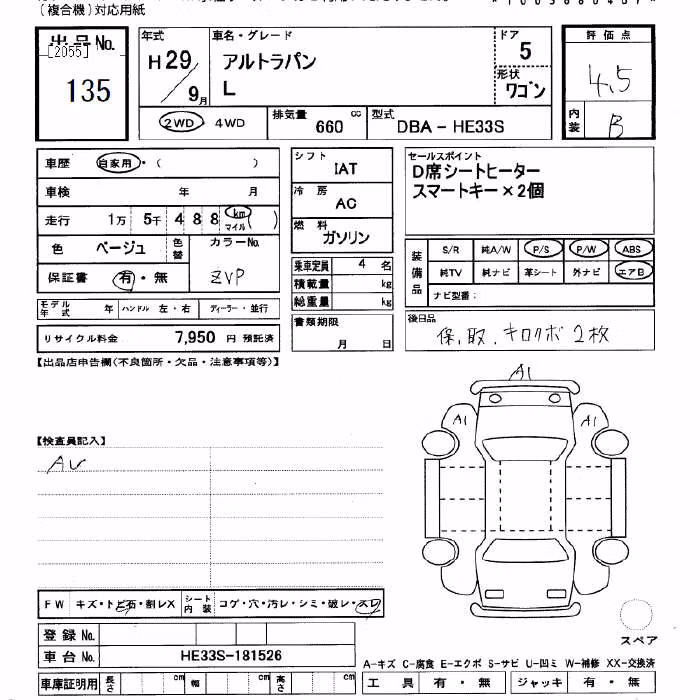 (複合機)対応用紙
出品No.
[2055]
135
年式
H29/9月
車名・グレード
アルトラパン
L
ドア
5
形状
ワゴン
2WD・4WD
排気量
660 cc
型式
DBA - HE33S
評価点
4.5
内装
B
車歴 自家用・( )
車検 年 月
走行 1万 5千 4 8 8 km マイル( )
色 ベージュ 色替 カラーNo.
保証書 有・無 ZVP
モデル年式 年 ハンドル 左・右 ディーラー・並行
リサイクル料金 7,950 円 預託済
シフト
IAT
冷房
AC
燃料
ガソリン
乗車定員 4 名
積載量 kg
総重量 kg
書類期限
月 日
セールスポイント
D席シートヒーター
スマートキー×2個
装備品
S/R 純A/W P/S P/W ABS
純TV 純ナビ 革シート 外ナビ エアB
ナビ型番:
後日品
保,取,キロクボ2枚
【出品店申告欄(不良箇所・欠品・注意事項等)】
A1
A1 A1
【検査員記入】
AU
FW キズ・トビ石・割レX シート内装 コゲ・穴・汚レ・シミ・破レ・スレ
登録No.
車台No. HE33S-181526
車庫証明用 長さ cm 幅 cm 高さ cm
スペア
A-キズ C-腐食 E-エクボ S-サビ U-凹ミ W-補修 XX-交換済
工具 有・無 ジャッキ 有・無